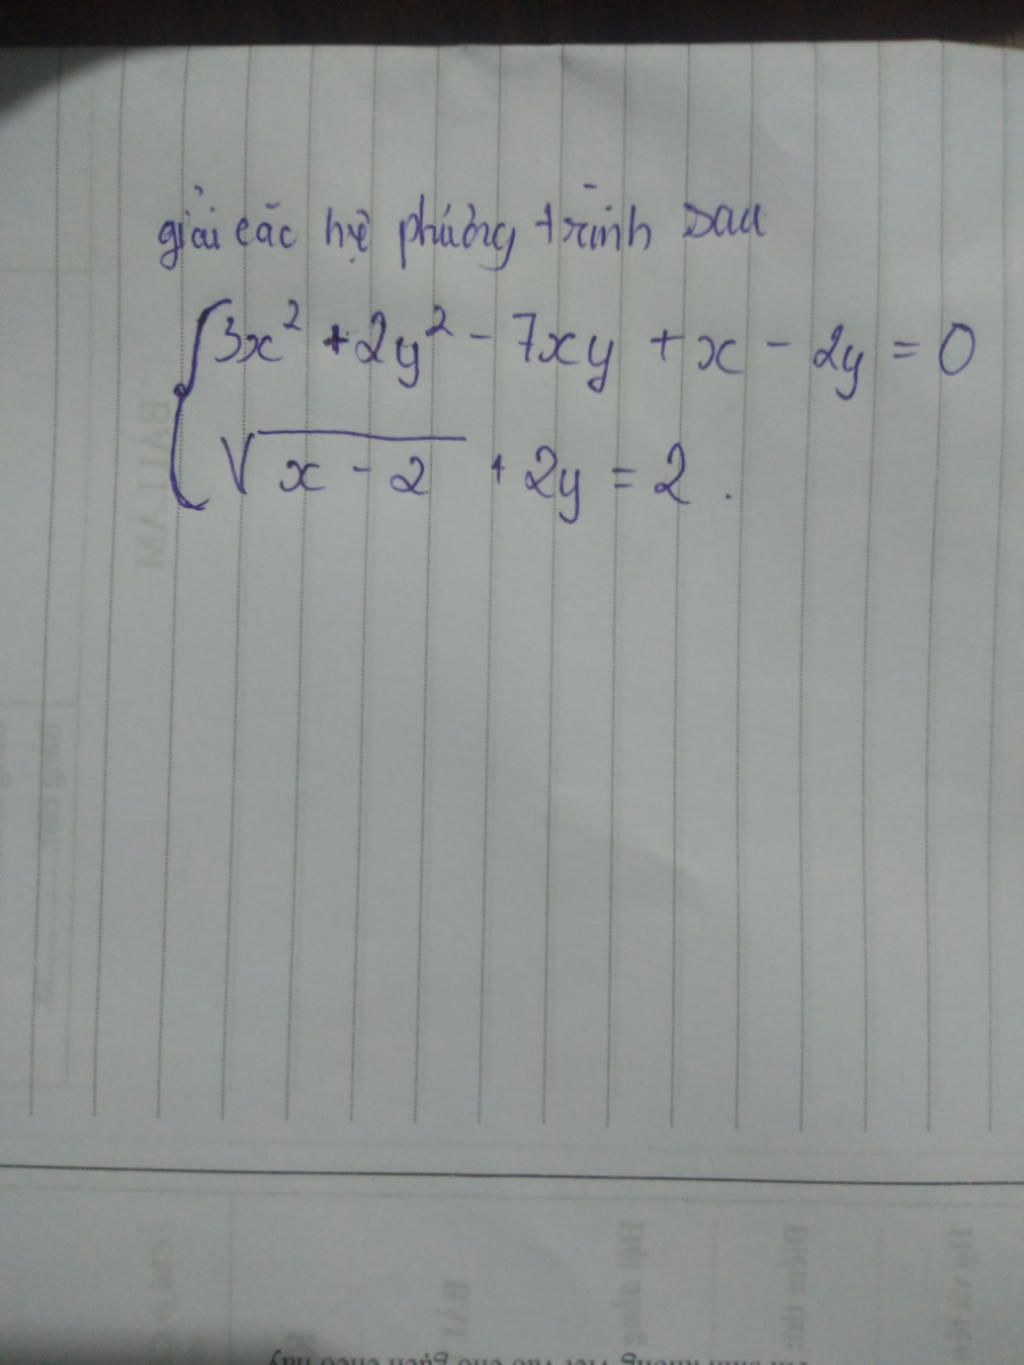 giải các hệ phương trình sau
3x² + 2y² - 7xy + x - 2y = 0
√(x - 2) + 2y = 2 .